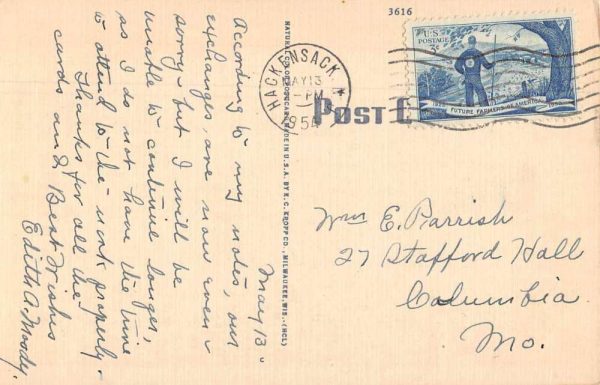 3616
U.S. POSTAGE
3¢
1928 FUTURE FARMERS OF AMERICA 1953
HACKENSACK
MAY 13
-PM
1954
POST C
NATURAL COLOR POST CARD MADE IN U.S.A. BY E. C. KROPP CO., MILWAUKEE, WIS. (HCL)
May 13 -
According to my notes, our
exchanges, are now even -
sorry - but I will be
unable to continue longer,
as I do not have the time
to attend to the work properly.
Thanks for all the
cards and Best Wishes
Edith A. Moody.
Wm E. Parrish
27 Stafford Hall
Columbia
Mo.